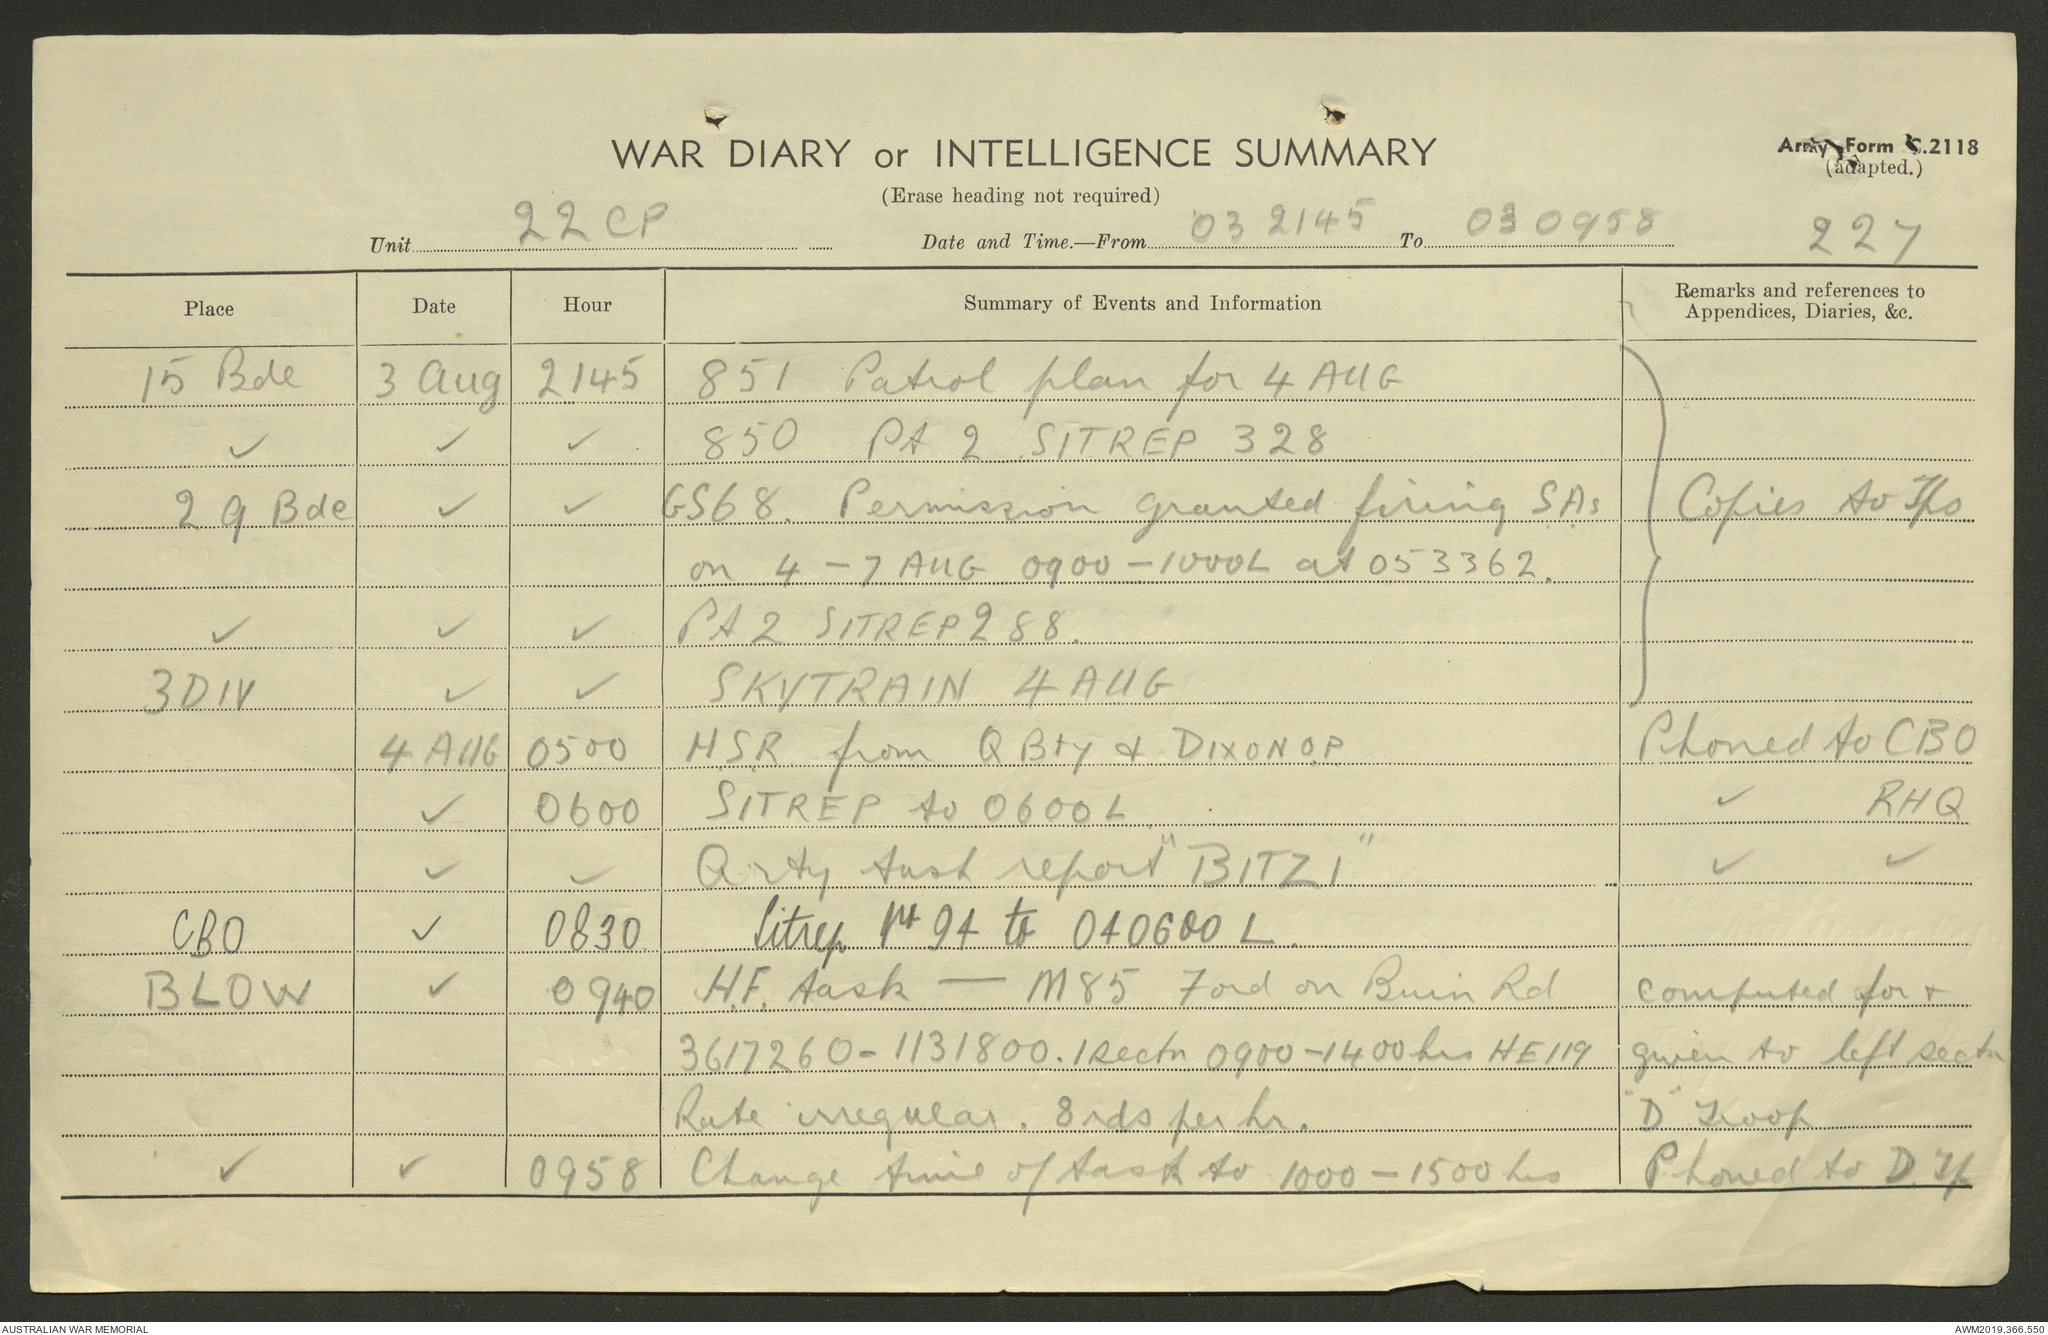 WAR DIARY or INTELLIGENCE SUMMARY
Army Form C.2118
(adapted.)
(Erase heading not required)
Unit 22 CP Date and Time.—From 03 2145 To 030958 227
Place Date Hour Summary of Events and Information Remarks and references to
Appendices, Diaries, &c.
15 Bde 3 Aug 2145 851 Patrol plan for 4 AUG
✓ ✓ ✓ 850 PA 2 SITREP 328
29 Bde ✓ ✓ GS68. Permission granted firing S.A.s Copies to Tps
on 4 - 7 AUG 0900 - 1000L at 053362.
✓ ✓ ✓ PA 2 SITREP 288.
3 DIV ✓ ✓ SKYTRAIN 4 AUG
4 AUG 0500 H.S.R from Q Bty & DIXON O.P. Phoned to CBO
✓ 0600 SITREP to 0600L ✓ RHQ
✓ ✓ Arty task report "BITZI" ✓ ✓
CBO ✓ 0830 Sitrep 94 to 040600 L.
BLOW ✓ 0940 H.F. task — M85 Ford on Buin Rd computed for +
3617260 - 1131800. 1 sectn 0900-1400 hrs HE119 given to left sectn
Rate irregular. 8 rds per hr. "D" Troop
✓ ✓ 0958 Change time of task to 1000 - 1500 hrs Phoned to D. Tp
AUSTRALIAN WAR MEMORIAL AWM2019.366.550